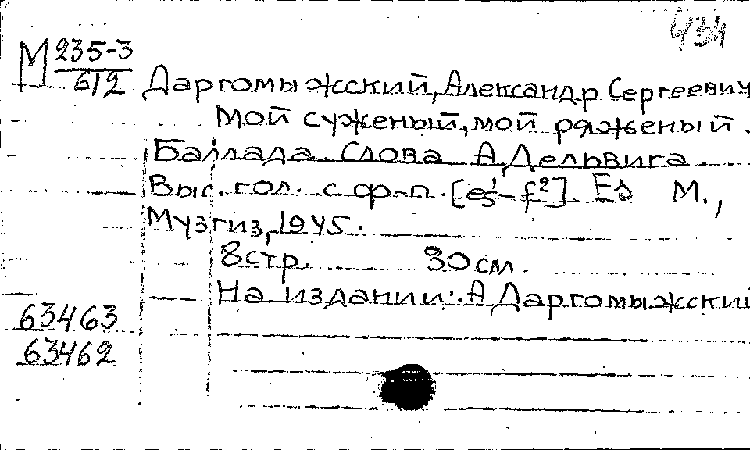 434
М 235-3
612
Даргомыжский, Александр Сергеевич
Мой суженый, мой ряженый.
Баллада. Слова А. Дельвига
Выс. гол. с ф-п. [es¹-f²] Es М.,
Музгиз, 1945.
8 стр. 30 см.
На издании: А. Даргомыжский
63463
63462